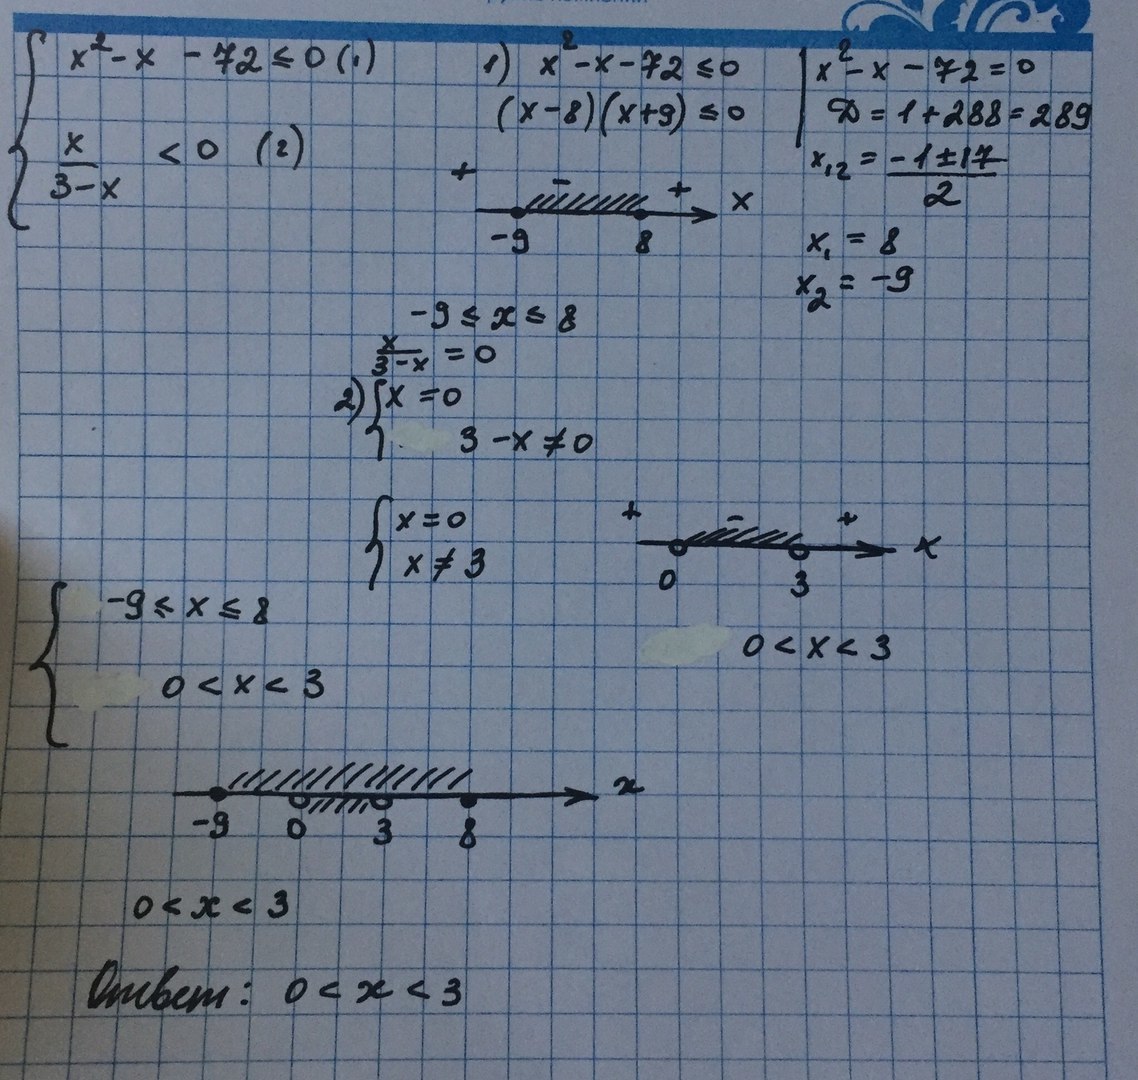 x² - x - 72 ≤ 0 (1)
x/(3-x) < 0 (2)
1) x² - x - 72 ≤ 0
(x-8)(x+9) ≤ 0
+ - + x
-9 8
x² - x - 72 = 0
D = 1 + 288 = 289
x₁,₂ = (-1 ± 17)/2
x₁ = 8
x₂ = -9
-9 ≤ x ≤ 8
x/(3-x) = 0
2) { x = 0
3 - x ≠ 0
{ x = 0
x ≠ 3
+ - + x
0 3
0 < x < 3
{ -9 ≤ x ≤ 8
0 < x < 3
x
-9 0 3 8
0 < x < 3
Ответ: 0 < x < 3